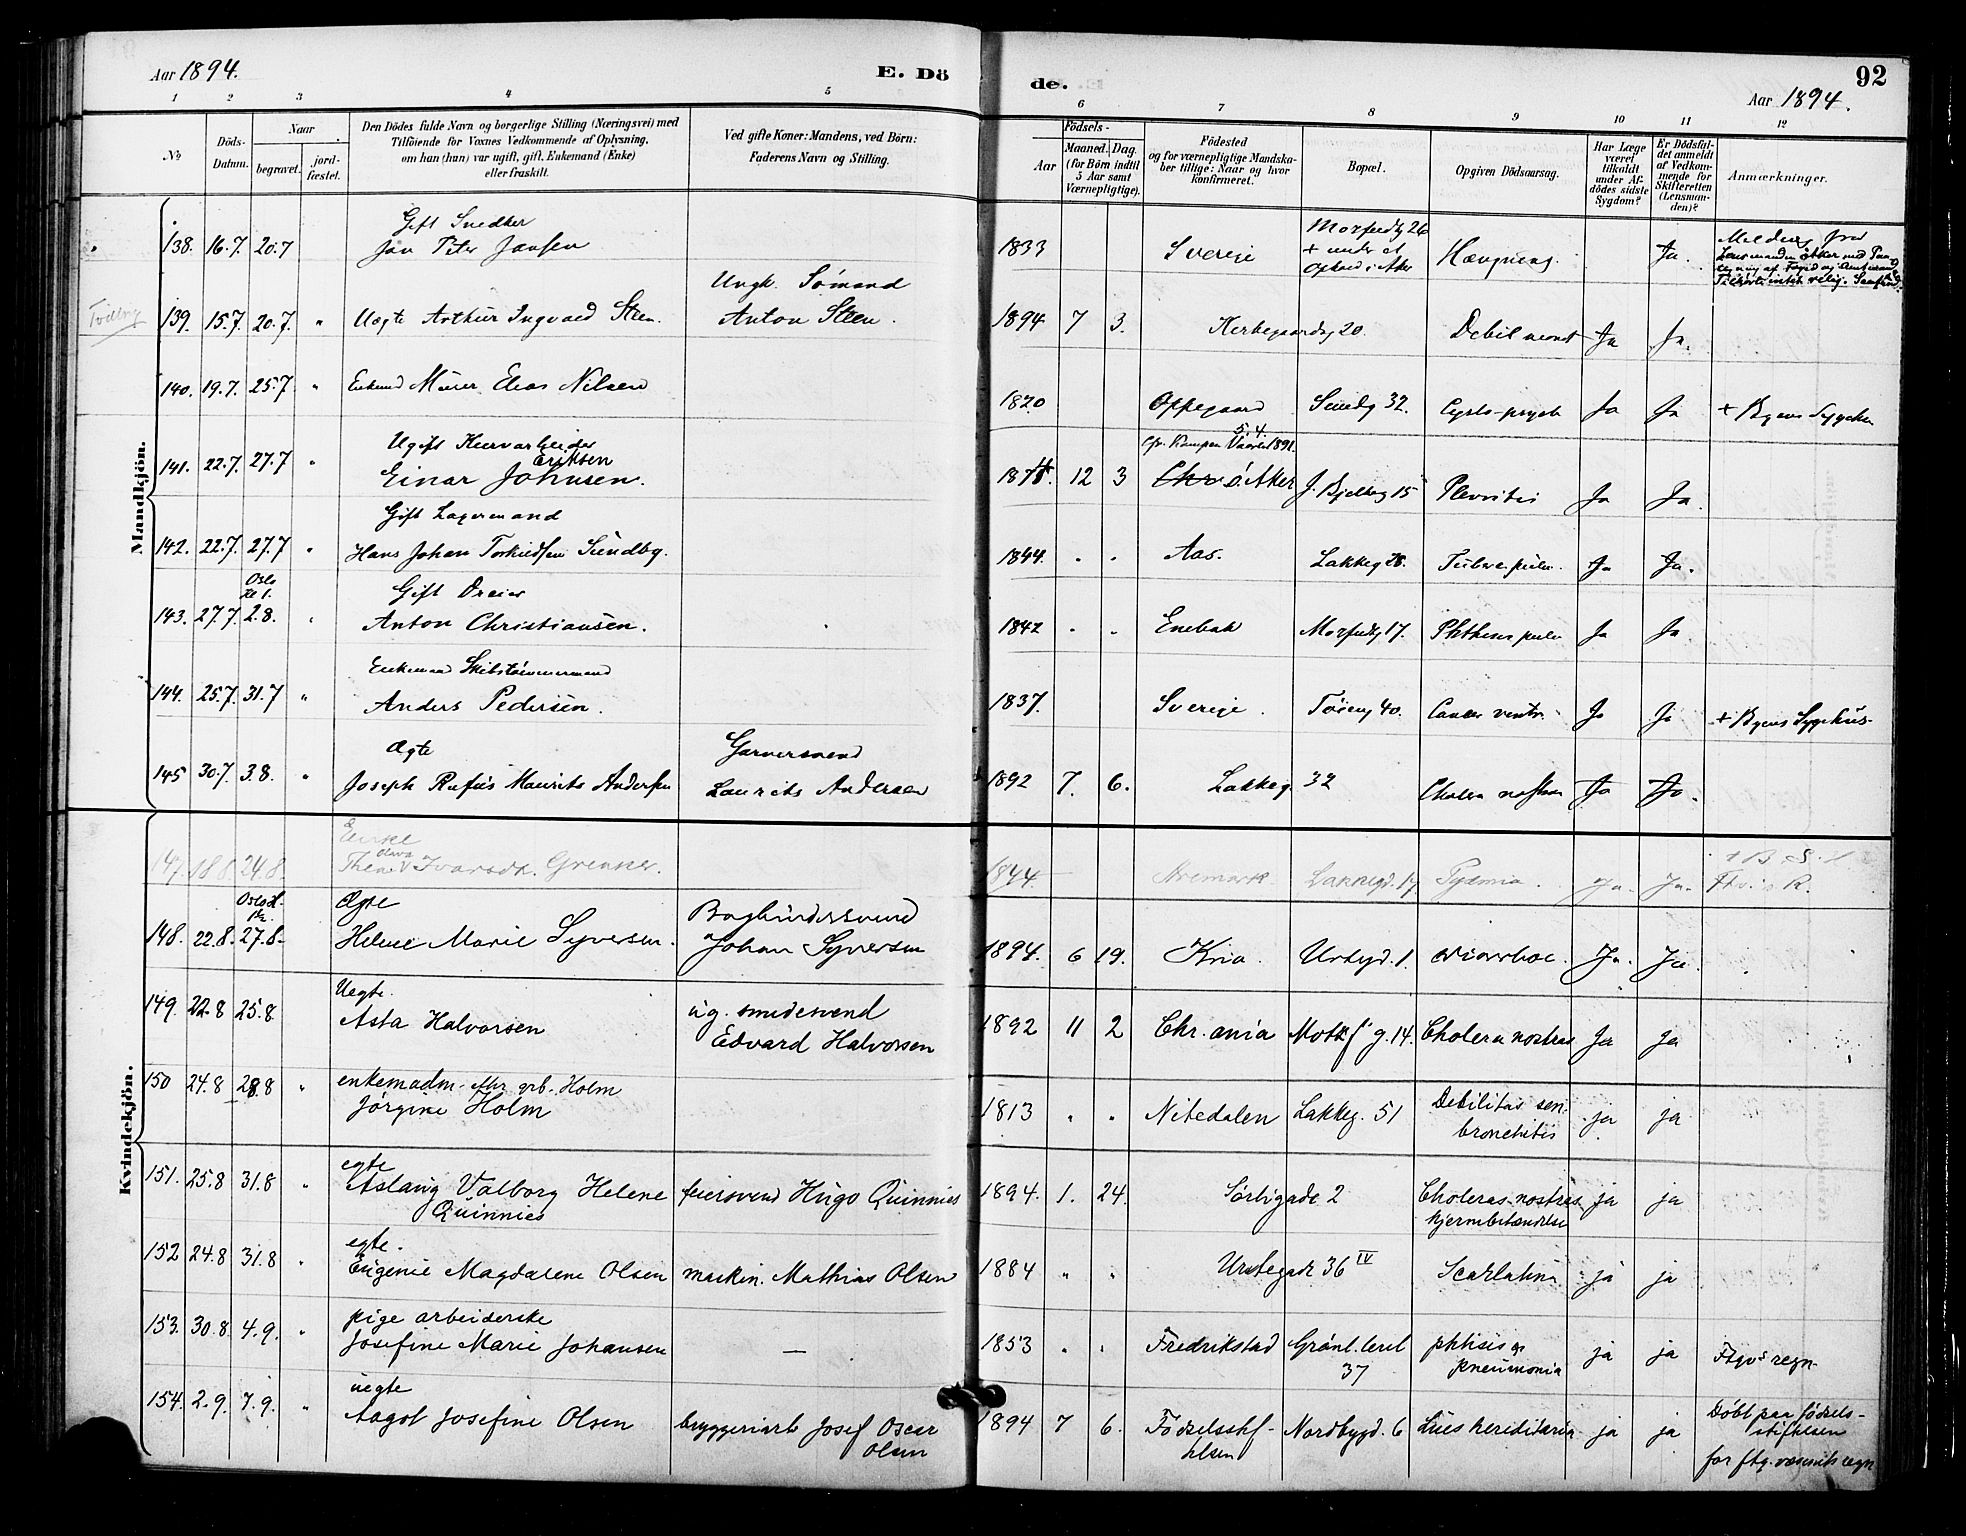 Aar 1894.
E. Dö
de.
92
Aar 1894.
1 2 3 4 5 6 7 8 9 10 11 12
No
Döds-Datum.
Naar
begravet.
jord-fæstet.
Den Dödes fulde Navn og borgerlige Stilling (Næringsvei) med
Tilföiende for Voxnes Vedkommende af Oplysning,
om han (hun) var ugift, gift, Enkemand (Enke)
eller fraskilt.
Ved gifte Koner: Mandens, ved Börn:
Faderens Navn og Stilling.
Födsels-
Aar
Maaned. Dag.
(for Börn indtil
5 Aar samt
Værnepligtige).
Födested
og for værnepligtige Mandska-
ber tillige: Naar og hvor
konfirmeret.
Bopæl.
Opgiven Dödsaarsag.
Har Læge
været
tilkaldt
under Af-
dödes sidste
Sygdom?
Er Dödsfal-
det anmeldt
af Vedkom-
mende for
Skifteretten
(Lensman-
den)?
Anmærkninger.
Mandkjön.
Gift Snedker
138. 16.7. 20.7 Jan Peter Jansen 1833 Sverige Hængning. Ja.
Ungk. Sömand
139. 15.7. 20.7. " Uegte Arthur Ingvald Steen. Anton Steen. 1894 7 3. 20. Debil neonat Ja Ja.
140. 19.7. 25.7 " Enkemd Murer Elias Nilsen 1820 Oppegaard 32. Ja Ja + Byens Sygehus
Ugift
Eriksen
141. 22.7. 27.7 " Einar Johnsen. 12 3 Aker 15 Pleuritis Ja Ja.
Gift Lagermand
142. 22.7. 27.7 " Hans Johan Sundbg. 1844. " " Aas. Lakkeg Ja Ja.
Oslo
Gift Dreier
143. 27.7. 2.8. Anton Christiansen. 1842 " " Enebak 17. Ja Ja
Enkemand Skibstömmermand
144. 25.7. 31.7 " Anders Pedersen. 1837. Sverige. 40. Cancer ventr. Ja Ja + Byens Sygehus
Ægte Garversvend
145 30.7. 3.8. " Joseph Rufus Maurits Andersen Laurits Andersen 1892 7. 6. Lakkeg 32 Cholera nostras Ja Ja.
Kvindekjön.
Enke
147 18.8. 24.8. Ivarsdr. Grenner. 1844. Aremark Lakkegd. 17. Ja. Ja.
Ægte Bogbindersvend
148. 22.8. 27.8. Helene Marie Syversen. Johan Syversen 1894. 6 19. Kria. Urtegd. 1. Diarrhoe. Ja. Ja.
Uegte. ug. smedesvend
149. 22.8 25.8. Asta Halvorsen Edvard Halvorsen 1892 11 2 Chr.ania 14. Cholera nostras Ja ja
150 24.8 28.8 " enkemadm. Holm
Jörgine Holm 1813 " " Nitedalen Lakkeg. 51 Debilitas sen. bronchitis ja ja
egte
151. 25.8 31.8 " Aslaug Valborg Helene Quinnies feiersvend Hugo Quinnies 1894. 1. 24. Sörligade 2 Choleras nostras hjernbetændelse ja ja
egte.
152 24.8 31.8 " Eugenie Magdalene Olsen maskin. Mathias Olsen 1884 " " Urtegade 36 IV Scarlatina ja ja
pige arbeiderske
153. 30.8. 4.9. " Josefine Marie Johansen — 1853 " " Fredrikstad Grönl. leret 37 phthisis og pneumonia ja ja
uegte
154. 2.9. 7.9. " Aagot Josefine Olsen bryggeriarb Josef Oscar Olsen 1894 7 6. Födselsstiftelsen Nordbygd. 6 Lues hereditaria ja ja Döbt paa födsels-
stiftelsen